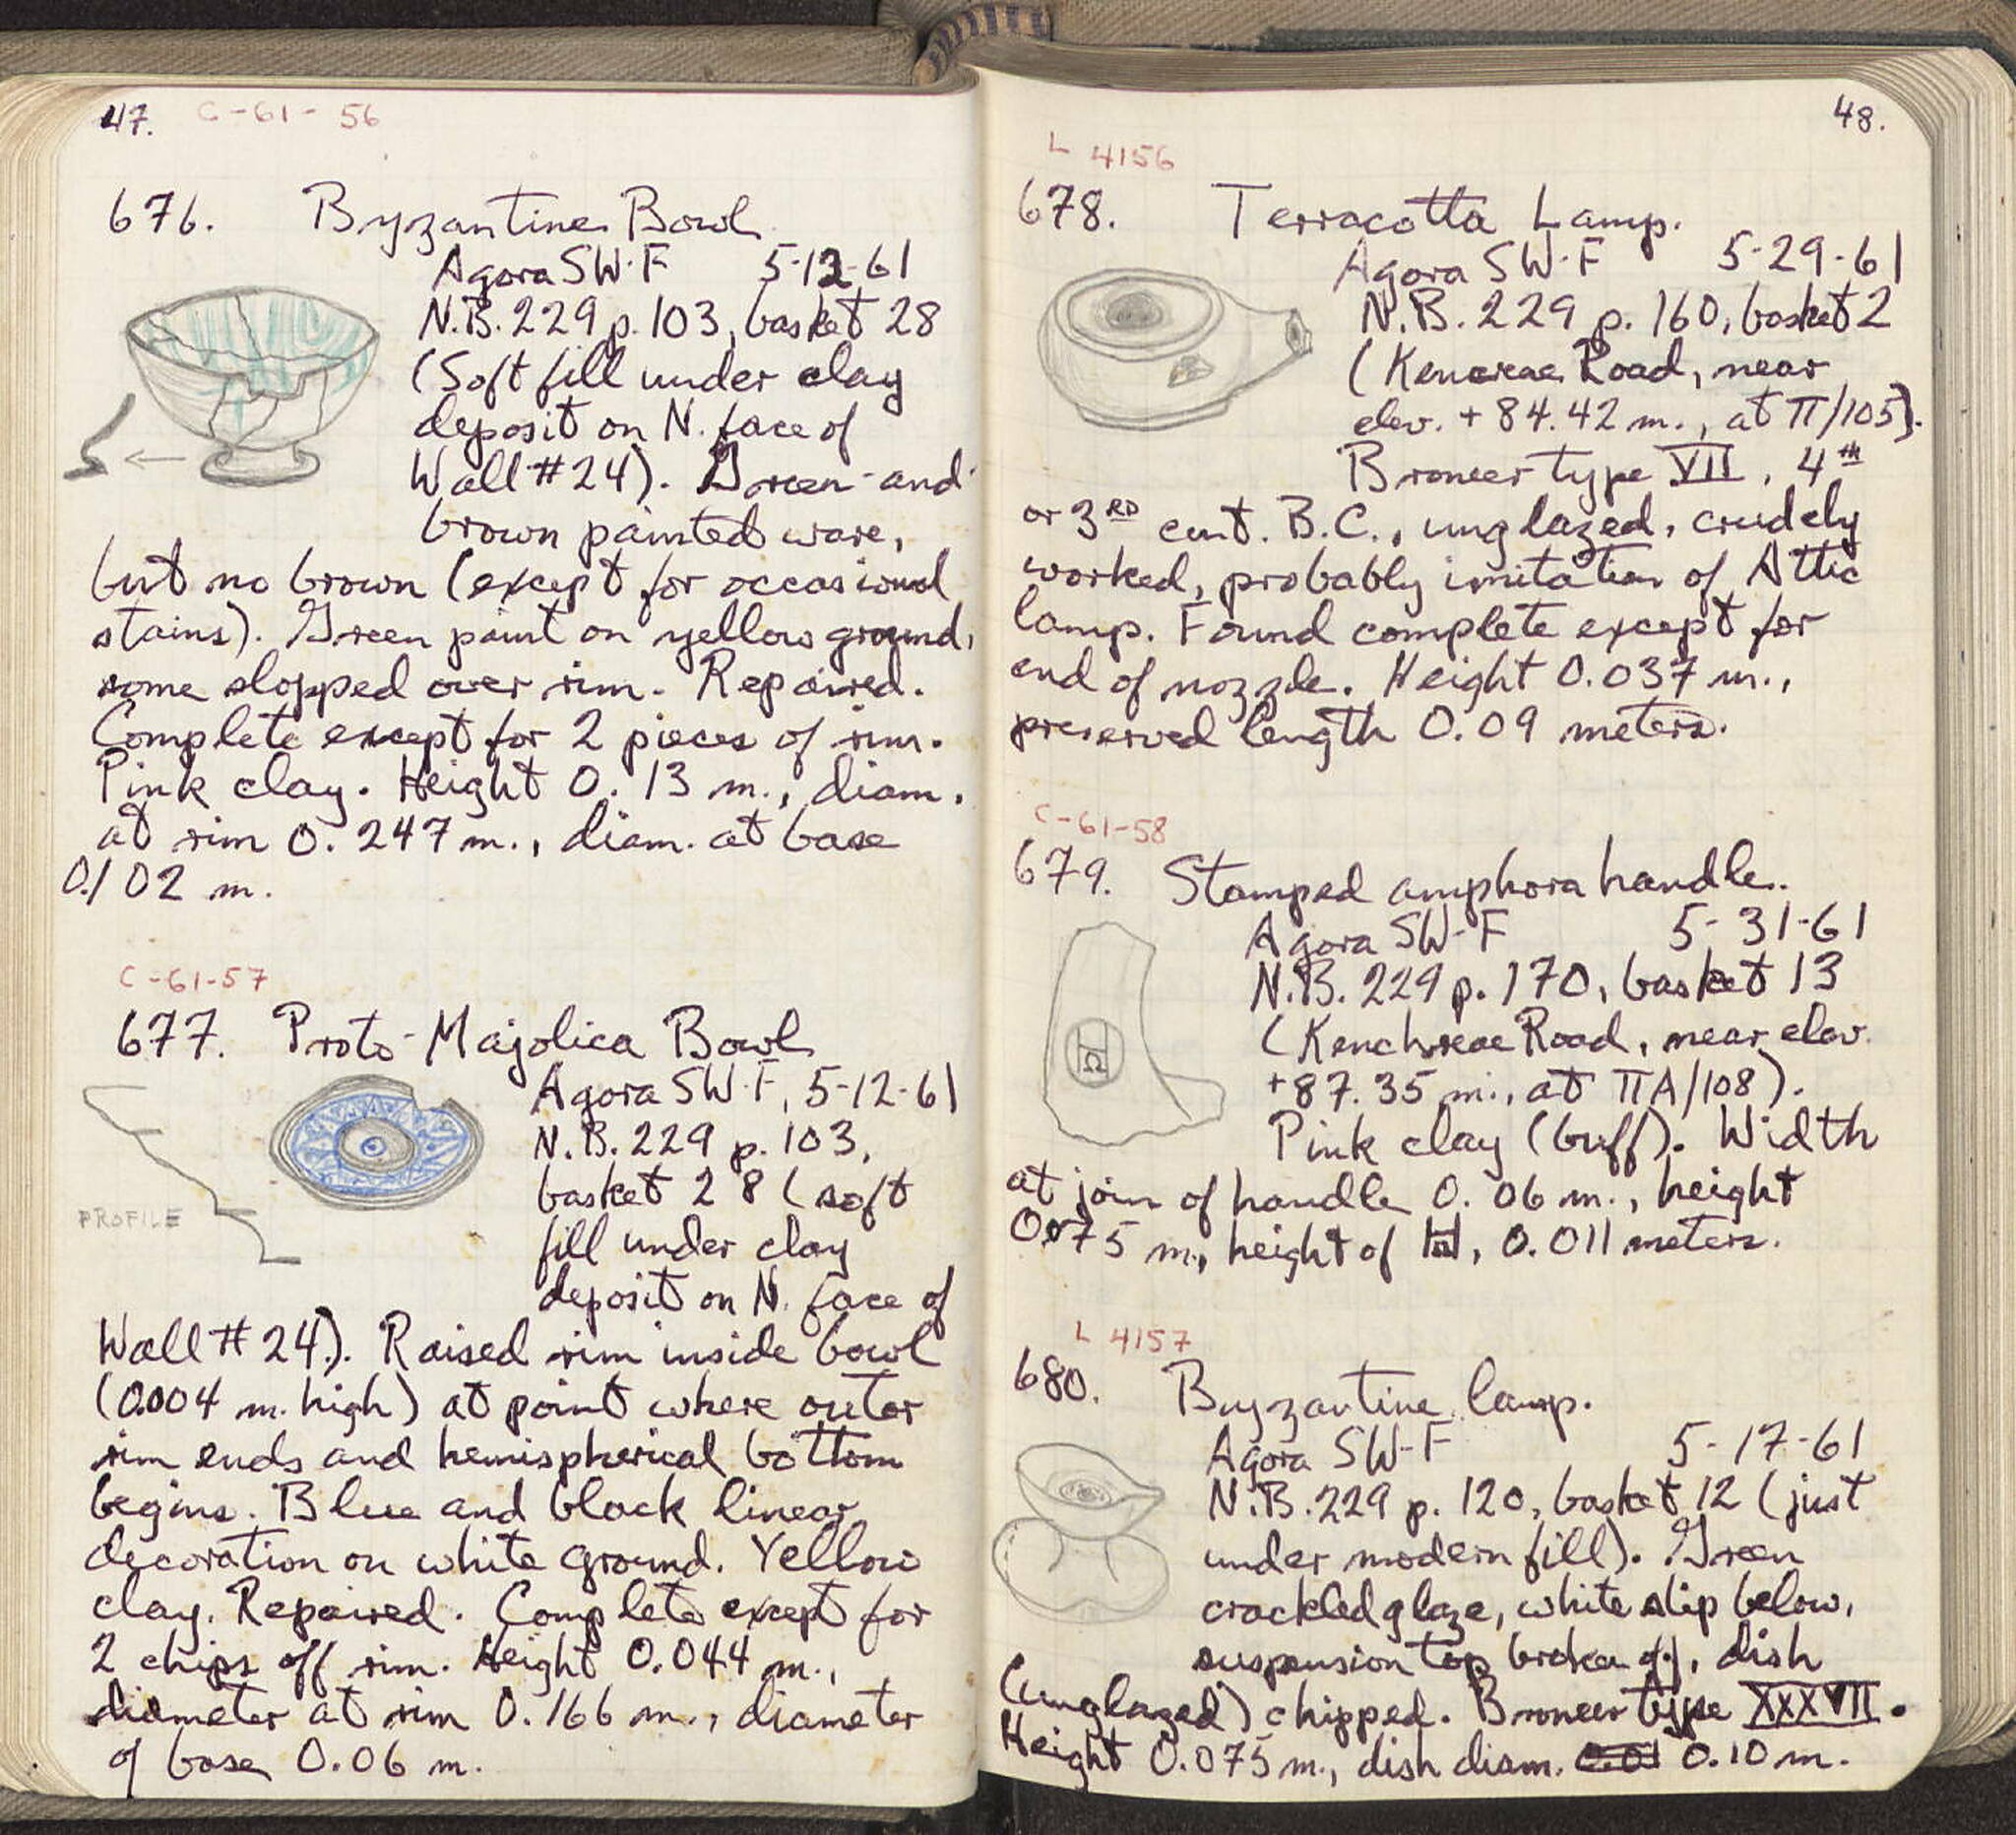 47. C-61-56
676. Byzantine Bowl
Agora SW-F 5-12-61
N.B. 229 p. 103, basket 28
(Soft fill under clay
deposit on N. face of
Wall #24). Green-and-
brown painted ware,
but no brown (except for occasional
stains). Green paint on yellow ground,
some slopped over rim. Repaired.
Complete except for 2 pieces of rim.
Pink clay. Height 0.13 m., diam.
at rim 0.247 m., diam. at base
0.102 m.
C-61-57
677. Proto-Majolica Bowl
Agora SW-F, 5-12-61
N.B. 229 p. 103,
basket 28 (soft
PROFILE
fill under clay
deposit on N. face of
Wall #24). Raised rim inside bowl
(0.004 m. high) at point where outer
rim ends and hemispherical bottom
begins. Blue and black linear
decoration on white ground. Yellow
clay. Repaired. Complete except for
2 chips off rim. Height 0.044 m.,
diameter at rim 0.166 m., diameter
of base 0.06 m.
48.
L 4156
678. Terracotta Lamp.
Agora SW-F 5-29-61
N.B. 229 p. 160, basket 2
(Kencreae Road, near
elev. +84.42 m., at Π/105).
Broneer type VII, 4th
or 3RD cent. B.C., unglazed, crudely
worked, probably imitation of Attic
lamp. Found complete except for
end of nozzle. Height 0.037 m.,
preserved length 0.09 meters.
C-61-58
679. Stamped amphora handle.
Agora SW-F 5-31-61
N.B. 229 p. 170, basket 13
(Kenchreae Road, near elev.
+87.35 m., at ΠA/108).
Ω
Pink clay (buff). Width
at join of handle 0.06 m., height
0.075 m., height of , 0.011 meters.
L 4157
680. Byzantine lamp.
Agora SW-F 5-17-61
N.B. 229 p. 120, basket 12 (just
under modern fill). Green
crackled glaze, white slip below,
suspension top broken off, dish
(unglazed) chipped. Broneer type XXXVII.
Height 0.075 m., dish diam. 0.10 m.